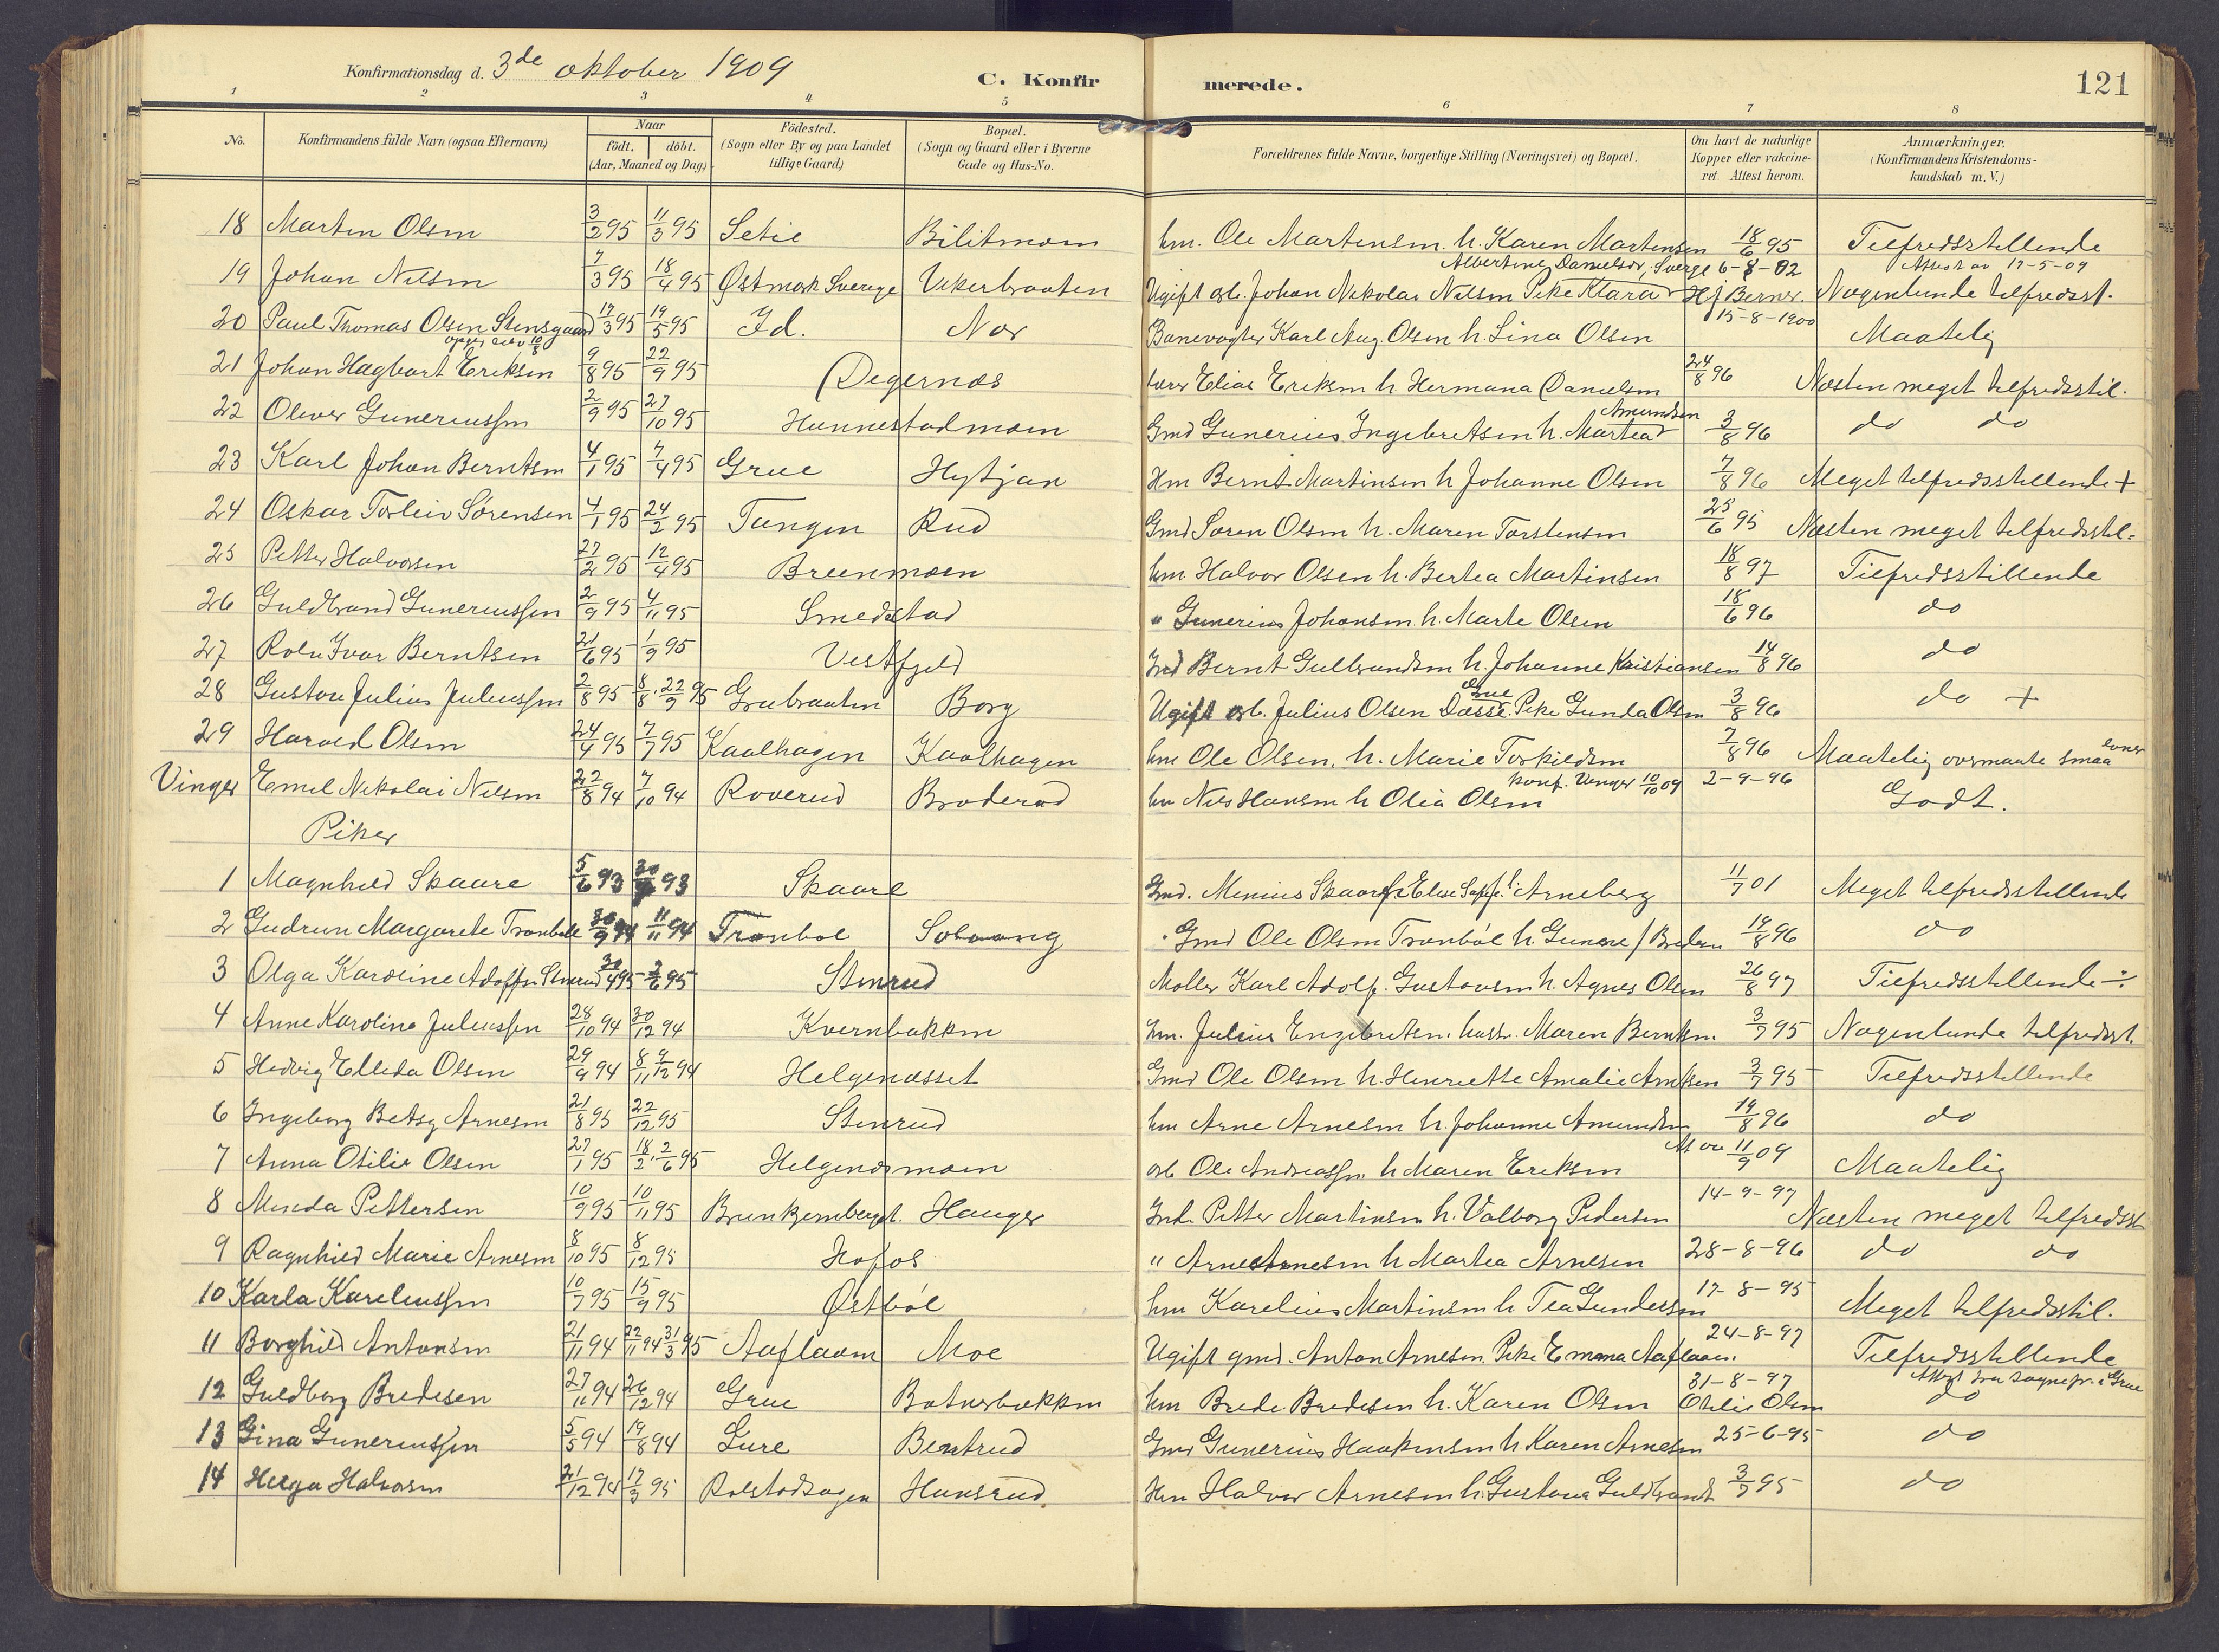 Konfirmationsdag d. 3de oktober 1909
C. Konfirmerede.
121
1 2 3 4 5 6 7 8
No.
Konfirmandens fulde Navn (ogsaa Efternavn)
Naar
födt. döbt.
(Aar, Maaned og Dag)
Födested.
(Sogn eller By og paa Landet tillige Gaard)
Bopæl.
(Sogn og Gaard eller i Byerne Gade og Hus-No.
Forældrenes fulde Navne, borgerlige Stilling (Næringsvei) og Bopæl.
Om havt de naturlige Kopper eller vakcineret. Attest herom.
Anmærkninger.
(Konfirmandens Kristendomskundskab m. V.)
18 Martin Olsen 3/2 95 11/3 95 Setie Bilitmoen hm. Ole Martensen. h. Karen Martensen 18/6 95 Tilfredsstillende
Albertine Danielsdr, Sverge 6-8-02 Attest av 17-5-09
19 Johan Nilsen 7/3 95 18/4 95 Østmark Sverige Vikerbraaten Ugift arb. Johan Nikolai Nilsen Pike Klara Hj Berner. Nogenlunde tilfredsst.
20 Paul Thomas Olsen Stensgaard 17/3 95 19/5 95 Id. Nor Banevogter Karl Aug. Olsen h. Lina Olsen 15-8-1900 Maatelig
21 Johan Hagbart Eriksen 9/8 95 22/9 95 Degernes Elias Eriksen h Hermana Danielsen 24/8 96 Næsten meget tilfredsstil.
22 Oliver Guneriussen 2/9 95 27/10 95 Hunnestadmoen Gmd Gunerius Ingebretsen h. Martea Amundsen 3/8 96 do do
23 Karl Johan Berntsen 4/1 95 7/4 95 Grue Hytjan Hm Bernt Martinsen h Johanne Olsen 7/8 96 Meget tilfredsstillende +
24 Oskar Torleiv Sörensen 4/1 95 24/2 95 Tangen Rud Gmd Soren Olsen h. Maren Torstensen 25/6 95 Næsten meget tilfredsstil.
25 Petter Halvorsen 27/2 95 12/4 95 Breenmoen hm Halvor Olsen h. Bertea Martinsen 18/8 97 Tilfredsstillende
26 Guldbrand Guneriussen 2/9 95 4/11 95 Smedstad " Gunerius Johansen h. Marte Olsen 18/6 96 do
27 Rolv Ivar Berntsen 21/6 95 1/9 95 Vestfjeld Ind Bernt Gulbrandsen h. Johanne Kristiansen 14/8 96 do
28 Gustav Julius Juliussen 2/8 95 8/8, 22/9 95 Grubraaten Borg Ugift arb. Julius Olsen Dæsse. Grue Pike Gunda Olsen 3/8 96 do +
29 Harald Olsen 24/4 95 7/7 95 Kaalhagen Kaalhagen hm Ole Olsen. h. Marie Torkildsen 7/8 96 Maatelig overmaate smaa evner
konf. Vinger 10/10 09
Vinger Emil Nikolai Nilsen 22/8 94 7/10 94 Roverud Broderud hm Nils Hansen h Olia Olsen 2-9-96 Godt.
Piker
1 Magnhild Skaare 5/6 93 93 Skaare Gmd. Minius Skaare Arneberg 11/7 01 Meget tilfredsstillende
2 Gudrun Margarete Tranböl 30/9 94 11/11 94 Tranböl Solvang Gmd Ole Olsen Tranböl h. Gunere 19/8 96 do
3 Olga Karoline Adolfsn Stenrud 30/4 95 3/6 95 Stenrud Moller Karl Adolf Gustavsen h. Agnes Olsen 26/8 97 Tilfredsstillende ÷
4 Anne Karoline Juliussen 28/10 94 30/12 94 Kvernbakken hm. Julius Engebretsn. hustr. Maren Berntsen 3/7 95 Nogenlunde tilfredsst.
5 Hedvig Ellida Olsen 29/9 94 8/11 9/12 94 Helgenæsset Gmd Ole Olsen h. Henriette Amalie Arntsen 3/7 95 Tilfredsstillende
6 Ingeborg Betsy Arnesen 21/8 95 22/12 95 Stenrud hm Arne Arnesen h. Johanne Amundsen 19/8 96 do
7 Anna Otilie Olsen 27/1 95 18/2, 2/6 95 Helgenesmoen arb Ole Andreassen h Maren Eriksen 11/9 09 Maatelig
8 Minda Pettersen 10/9 95 10/11 95 Brenkjernberget. Hauger Ind. Petter Martinsen h. Valborg Pedersen 14-9-97 Næsten meget tilfredsst
9 Ragnhild Marie Arnesen 8/10 95 8/12 95 Hofos " Arne Arnesen h Martea Arnesen 28-8-96 do do
10 Karla Kareliussen 10/7 95 15/9 95 Østböl hm Karelius Martinsen h Tea Gundersen 17-8-95 Meget tilfredsstil.
11 Borghild Antonsen 21/11 94 22/11 94 31/3 95 Aaflaaen Moe Ugift gmd. Anton Arnesen. Pike Emma Aaflaaen. 24-8-97 Tilfredsstillende
12 Guldborg Bredesen 27/11 94 26/12 94 Grue Botnerbakken hm Brede Bredesen h. Karen Otilie Olsen 31-8-97 Attest fra sognepr. i Grue do
13 Gina Guneriussen 5/5 94 19/8 94 Lure Bentrud Gmd Gunerius Haakensen h Karen Arnesen 25-6-95 do
14 Helga Halvorsen 21/12 94 17/3 95 Rolstadsagen Hansrud. Hm Halvor Arnesen h. Gustava Guldbrands 3/7 95 do